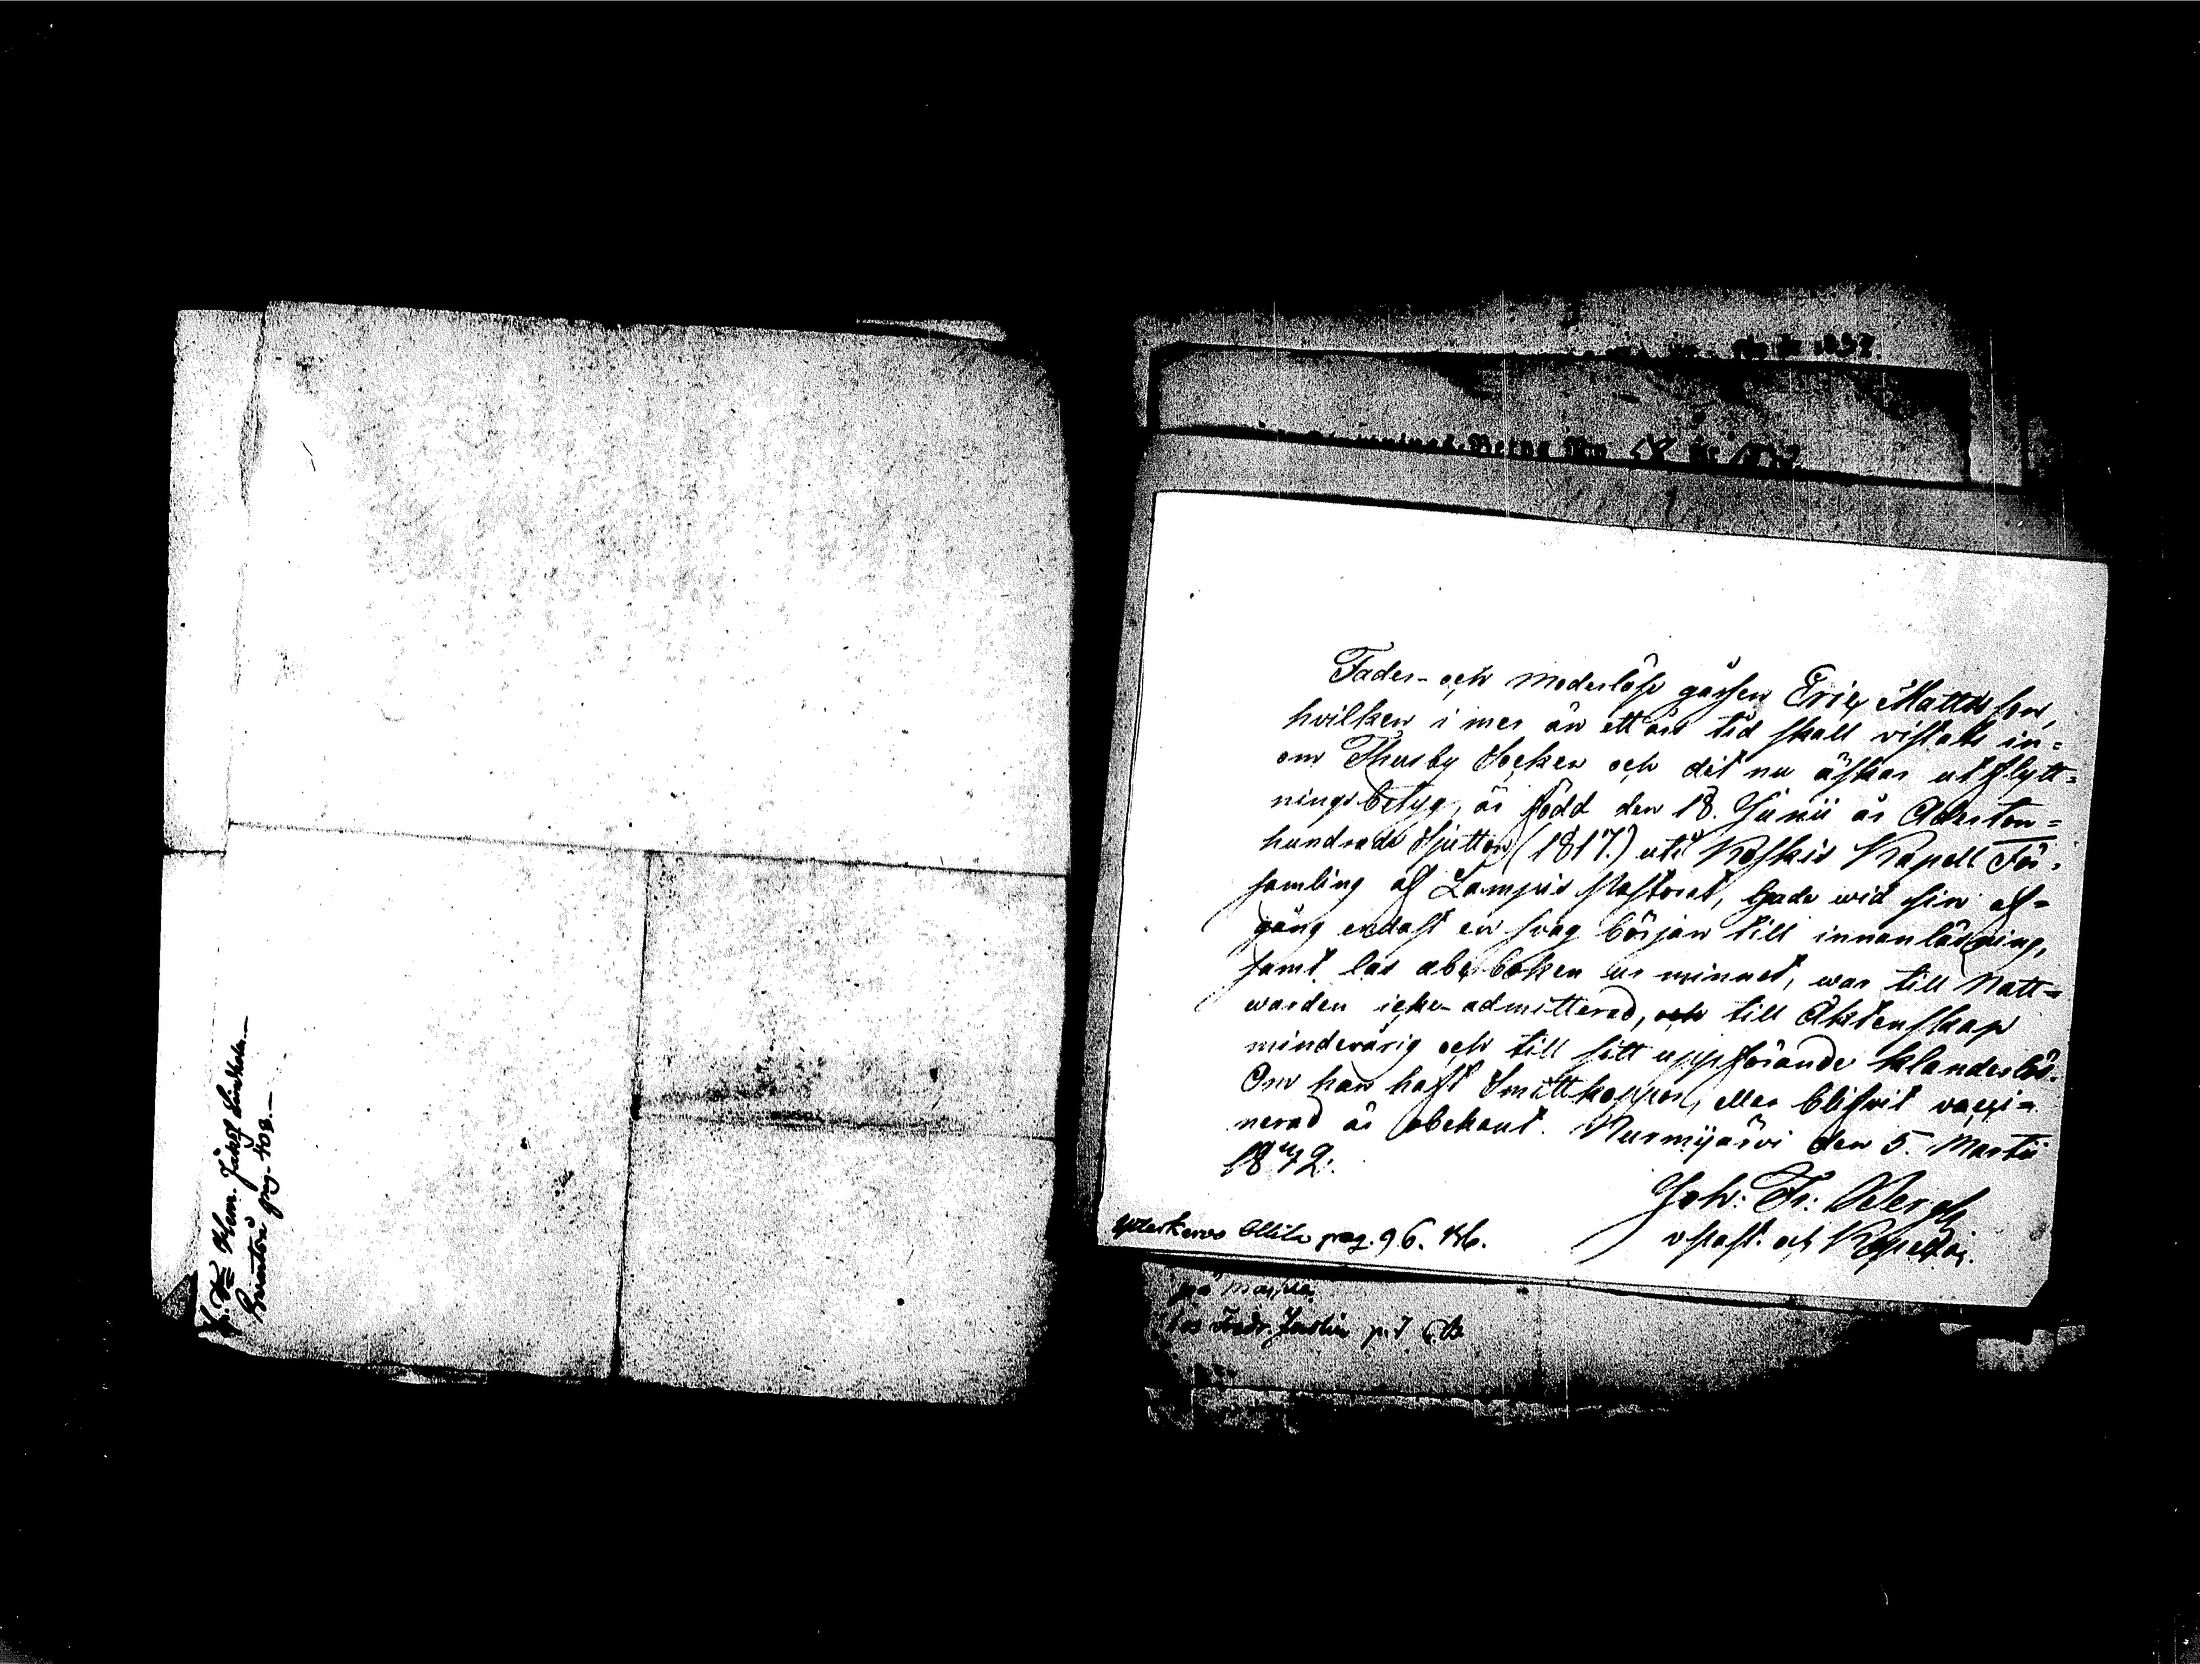 Kem. Jakop
pag. 408.
år 1837.
18 år 1837.
Fader- och moderlöse gåssen Eric Mattsson,
hvilken i mer än ett års tid skall vistats in=
om Thusby Socken och dit nu äskar utflytt=
ningsbetyg, är född den 18. Junii år Aderton=
hundrade Sjutton (1817.) uti Koskis Kapell För=
samling af Lampis Pastorat, hade wid sin af=
gång endast en swag början till innanläsning,
samt las abc boken ur minnet, war till Natt=
warden icke admitterad, och till Äktenskap
minderårig och till sitt uppförande klanderlös.
Om han haft Smittkoppor, eller blifwit vacci=
nerad är obekant. Nurmijärvi den 5. Martii
1842.
Joh: Fr: Bergh
v Past. och Kapellan.
Ytterkervo Ollila pag. 96.
på
hos Fredr. p. 7